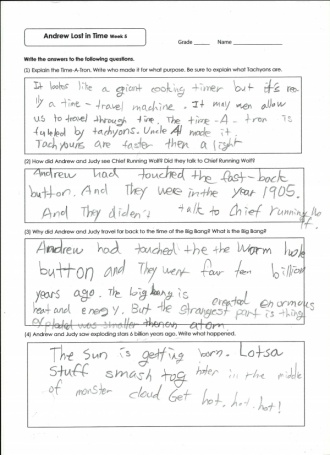 Andrew Lost in Time Week 5
Grade ______ Name ____________
Write the answers to the following questions.
(1) Explain the Time-A-Tron. Write who made it for what purpose. Be sure to explain what Tachyons are.
It looks like a giant cooking timer but it's rea
lly a time-travel machine. It may men allow
us to travel through time. The time-A-tron is
fueled by tachyons. Uncle Al made it.
Tachyours are faster then a light
(2) How did Andrew and Judy see Chief Running Wolf? Did they talk to Chief Running Wolf?
Andrew had touched the fast-back
button. And They were in the year 1905.
And They diden's talk to Chief running
(3) Why did Andrew and Judy travel far back to the time of the Big Bang? What is the Big Bang?
Andrew had touched the the Worm hole
button and They went four ten billion
years ago. The big bang is created enurmous
heat and energy. But the strangest part is thing
exploded was smaller than an atom
(4) Andrew and Judy saw exploding stars 6 billion years ago. Write what happened.
The Sun is getting born. Lotsa
Stuff smash tog hter in the middle
of monster cloud Get hot, hot, hot!